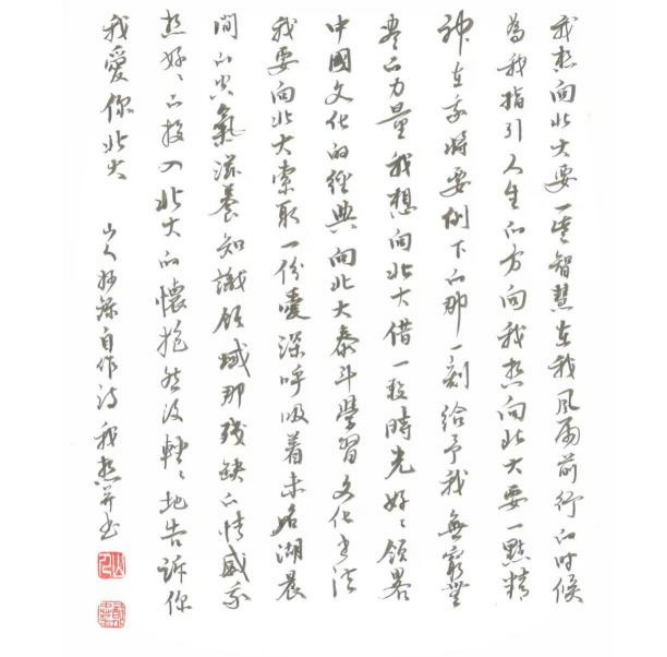 我想向北大要一些智慧在我风雨前行的时候
為我指引人生的方向我想向北大要一點精
神在我將要倒下的那一刻給予我無窮無
盡的力量我想向北大借一段時光好好領略
中國文化的經典向北大泰斗學習文化書法
我要向北大索取一份愛深呼吸着未名湖晨
間的灵氣滋養知識領域那残缺的情感我
想好好的投入北大的懷抱然後輕輕地告訴你
我愛你北大 山人 自作诗我想并书